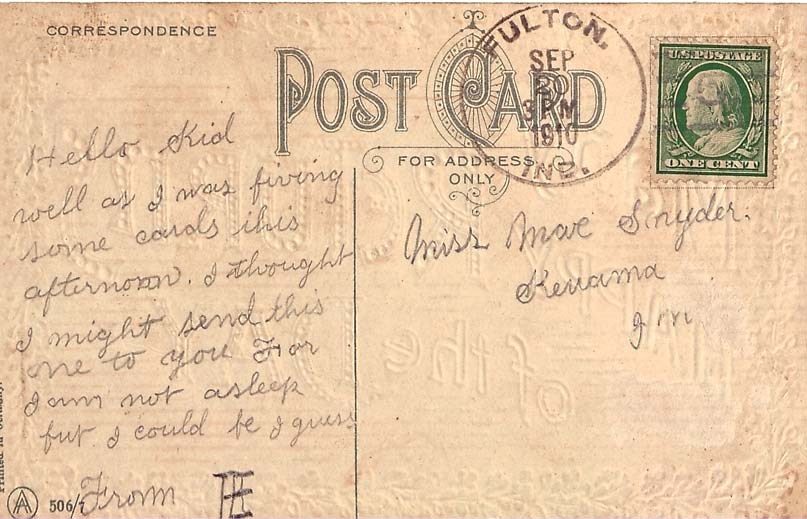 CORRESPONDENCE
POST CARD
FOR ADDRESS
ONLY
FULTON,
SEP
20
3 PM
1910
IND.
U.S. POSTAGE
ONE CENT
Hello Kid
well as I was fixing
some cards this
afternoon. I thought
I might send this
one to you For
I am not asleep
but I could be I guess
From
Miss Mae Snyder.
Kewanna
In
Printed in Germany.
AA
506/7